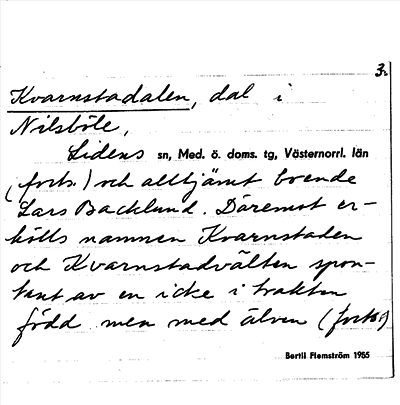 3.
Kvarnstadalen, dal i
Nilsböle,
Lidens sn, Med. ö. doms. tg, Västernorrl. län
(forts.) och alltjämt boende
Lars Backlund. Däremot er-
hölls namnen Kvarnstaden
och Kvarnstadvälten spon-
tant av en icke i trakten
född men med älven (forts.)
Bertil Flemström 1955